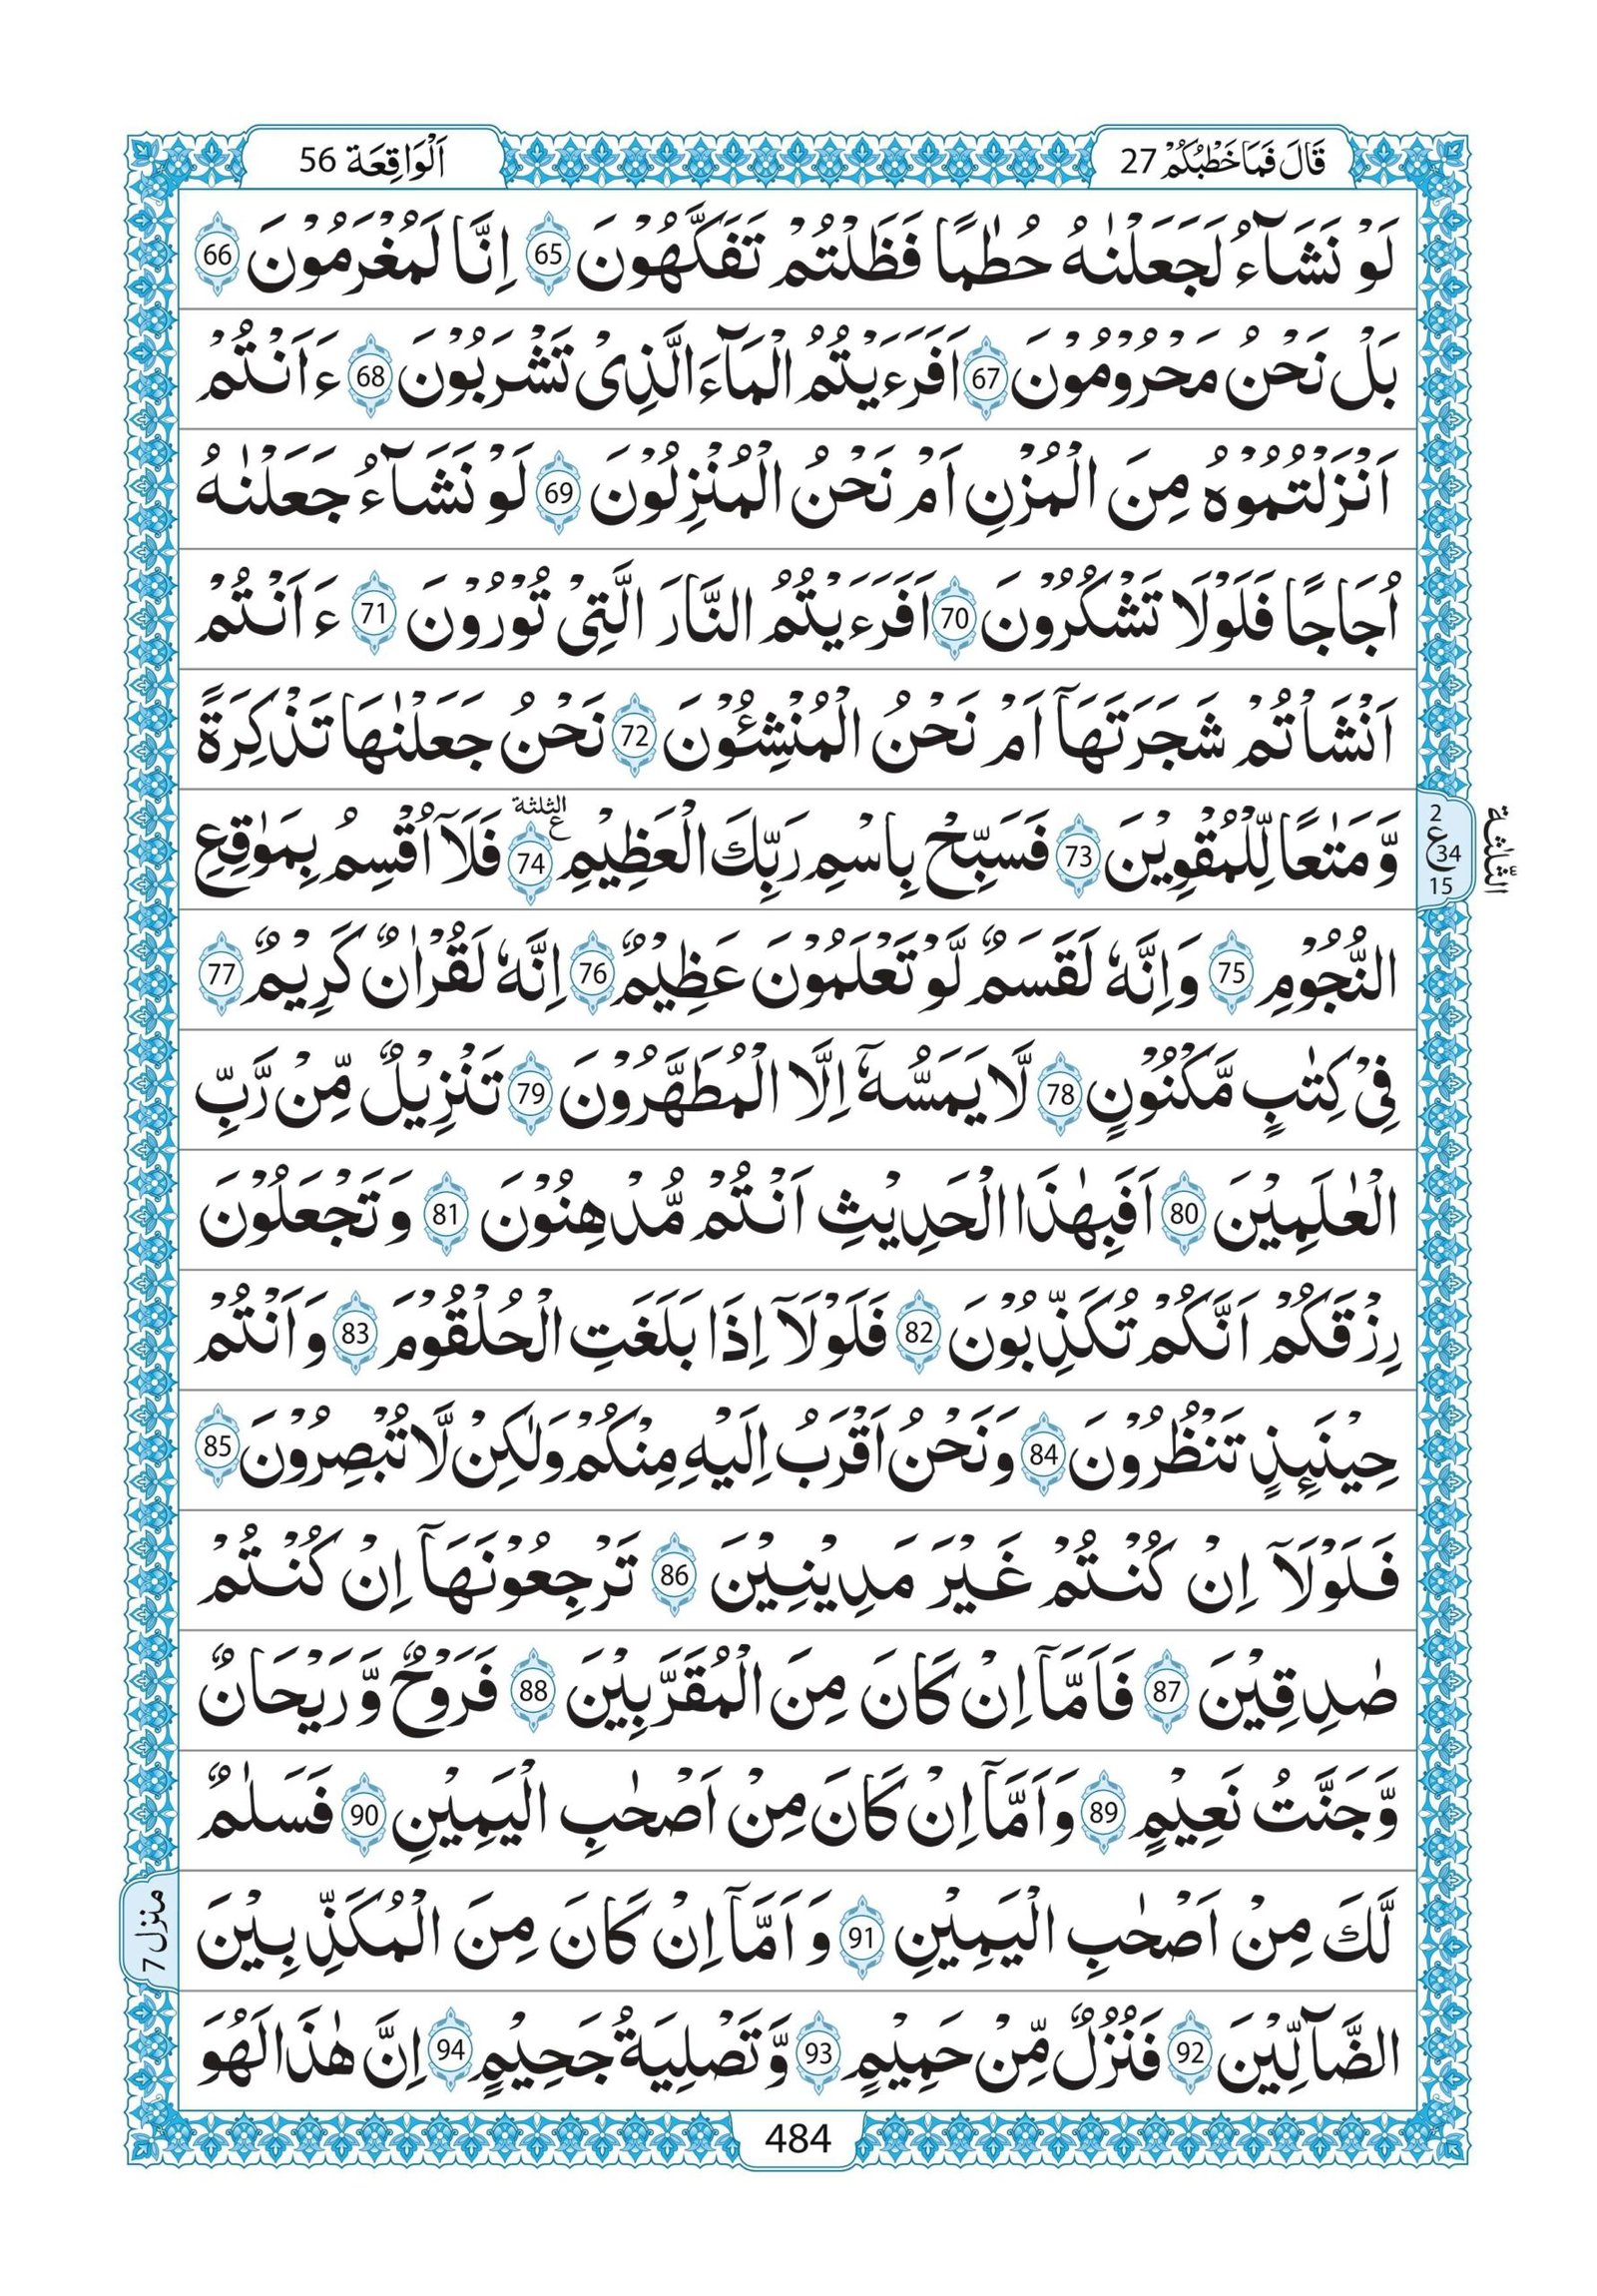 قَالَ فَمَا خَطْبُكُمْ 27
اَلْوَاقِعَة 56
لَوْ نَشَآءُ لَجَعَلْنٰهُ حُطٰمًا فَظَلْتُمْ تَفَكَّهُوْنَ 65 اِنَّا لَمُغْرَمُوْنَ 66
بَلْ نَحْنُ مَحْرُوْمُوْنَ 67 اَفَرَءَيْتُمُ الْمَآءَ الَّذِىْ تَشْرَبُوْنَ 68 ءَاَنْتُمْ
اَنْزَلْتُمُوْهُ مِنَ الْمُزْنِ اَمْ نَحْنُ الْمُنْزِلُوْنَ 69 لَوْ نَشَآءُ جَعَلْنٰهُ
اُجَاجًا فَلَوْلَا تَشْكُرُوْنَ 70 اَفَرَءَيْتُمُ النَّارَ الَّتِىْ تُوْرُوْنَ 71 ءَاَنْتُمْ
اَنْشَاْتُمْ شَجَرَتَهَآ اَمْ نَحْنُ الْمُنْشِئُوْنَ 72 نَحْنُ جَعَلْنٰهَا تَذْكِرَةً
وَّمَتٰعًا لِّلْمُقْوِيْنَ 73 فَسَبِّحْ بِاسْمِ رَبِّكَ الْعَظِيْمِ 74 ع الثلثة فَلَآ اُقْسِمُ بِمَوٰقِعِ
2
ع 34
15
الثّلٰثة
النُّجُوْمِ 75 وَاِنَّهٗ لَقَسَمٌ لَّوْ تَعْلَمُوْنَ عَظِيْمٌ 76 اِنَّهٗ لَقُرْاٰنٌ كَرِيْمٌ 77
فِىْ كِتٰبٍ مَّكْنُوْنٍ 78 لَّا يَمَسُّهٗٓ اِلَّا الْمُطَهَّرُوْنَ 79 تَنْزِيْلٌ مِّنْ رَّبِّ
الْعٰلَمِيْنَ 80 اَفَبِهٰذَا الْحَدِيْثِ اَنْتُمْ مُّدْهِنُوْنَ 81 وَتَجْعَلُوْنَ
رِزْقَكُمْ اَنَّكُمْ تُكَذِّبُوْنَ 82 فَلَوْلَآ اِذَا بَلَغَتِ الْحُلْقُوْمَ 83 وَاَنْتُمْ
حِيْنَئِذٍ تَنْظُرُوْنَ 84 وَنَحْنُ اَقْرَبُ اِلَيْهِ مِنْكُمْ وَلٰكِنْ لَّا تُبْصِرُوْنَ 85
فَلَوْلَآ اِنْ كُنْتُمْ غَيْرَ مَدِيْنِيْنَ 86 تَرْجِعُوْنَهَآ اِنْ كُنْتُمْ
صٰدِقِيْنَ 87 فَاَمَّآ اِنْ كَانَ مِنَ الْمُقَرَّبِيْنَ 88 فَرَوْحٌ وَّرَيْحَانٌ
وَّجَنَّتُ نَعِيْمٍ 89 وَاَمَّآ اِنْ كَانَ مِنْ اَصْحٰبِ الْيَمِيْنِ 90 فَسَلٰمٌ
لَّكَ مِنْ اَصْحٰبِ الْيَمِيْنِ 91 وَاَمَّآ اِنْ كَانَ مِنَ الْمُكَذِّبِيْنَ
منزل 7
الضَّآلِّيْنَ 92 فَنُزُلٌ مِّنْ حَمِيْمٍ 93 وَّتَصْلِيَةُ جَحِيْمٍ 94 اِنَّ هٰذَا لَهُوَ
484